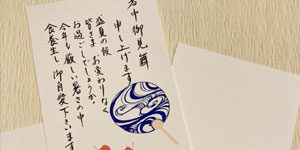 暑中御見舞
申し上げます
盛夏の候
皆さま お変わりなく
お過ごしでしょうか
今年も厳しい暑さの中
食養生し 御自愛下さいます